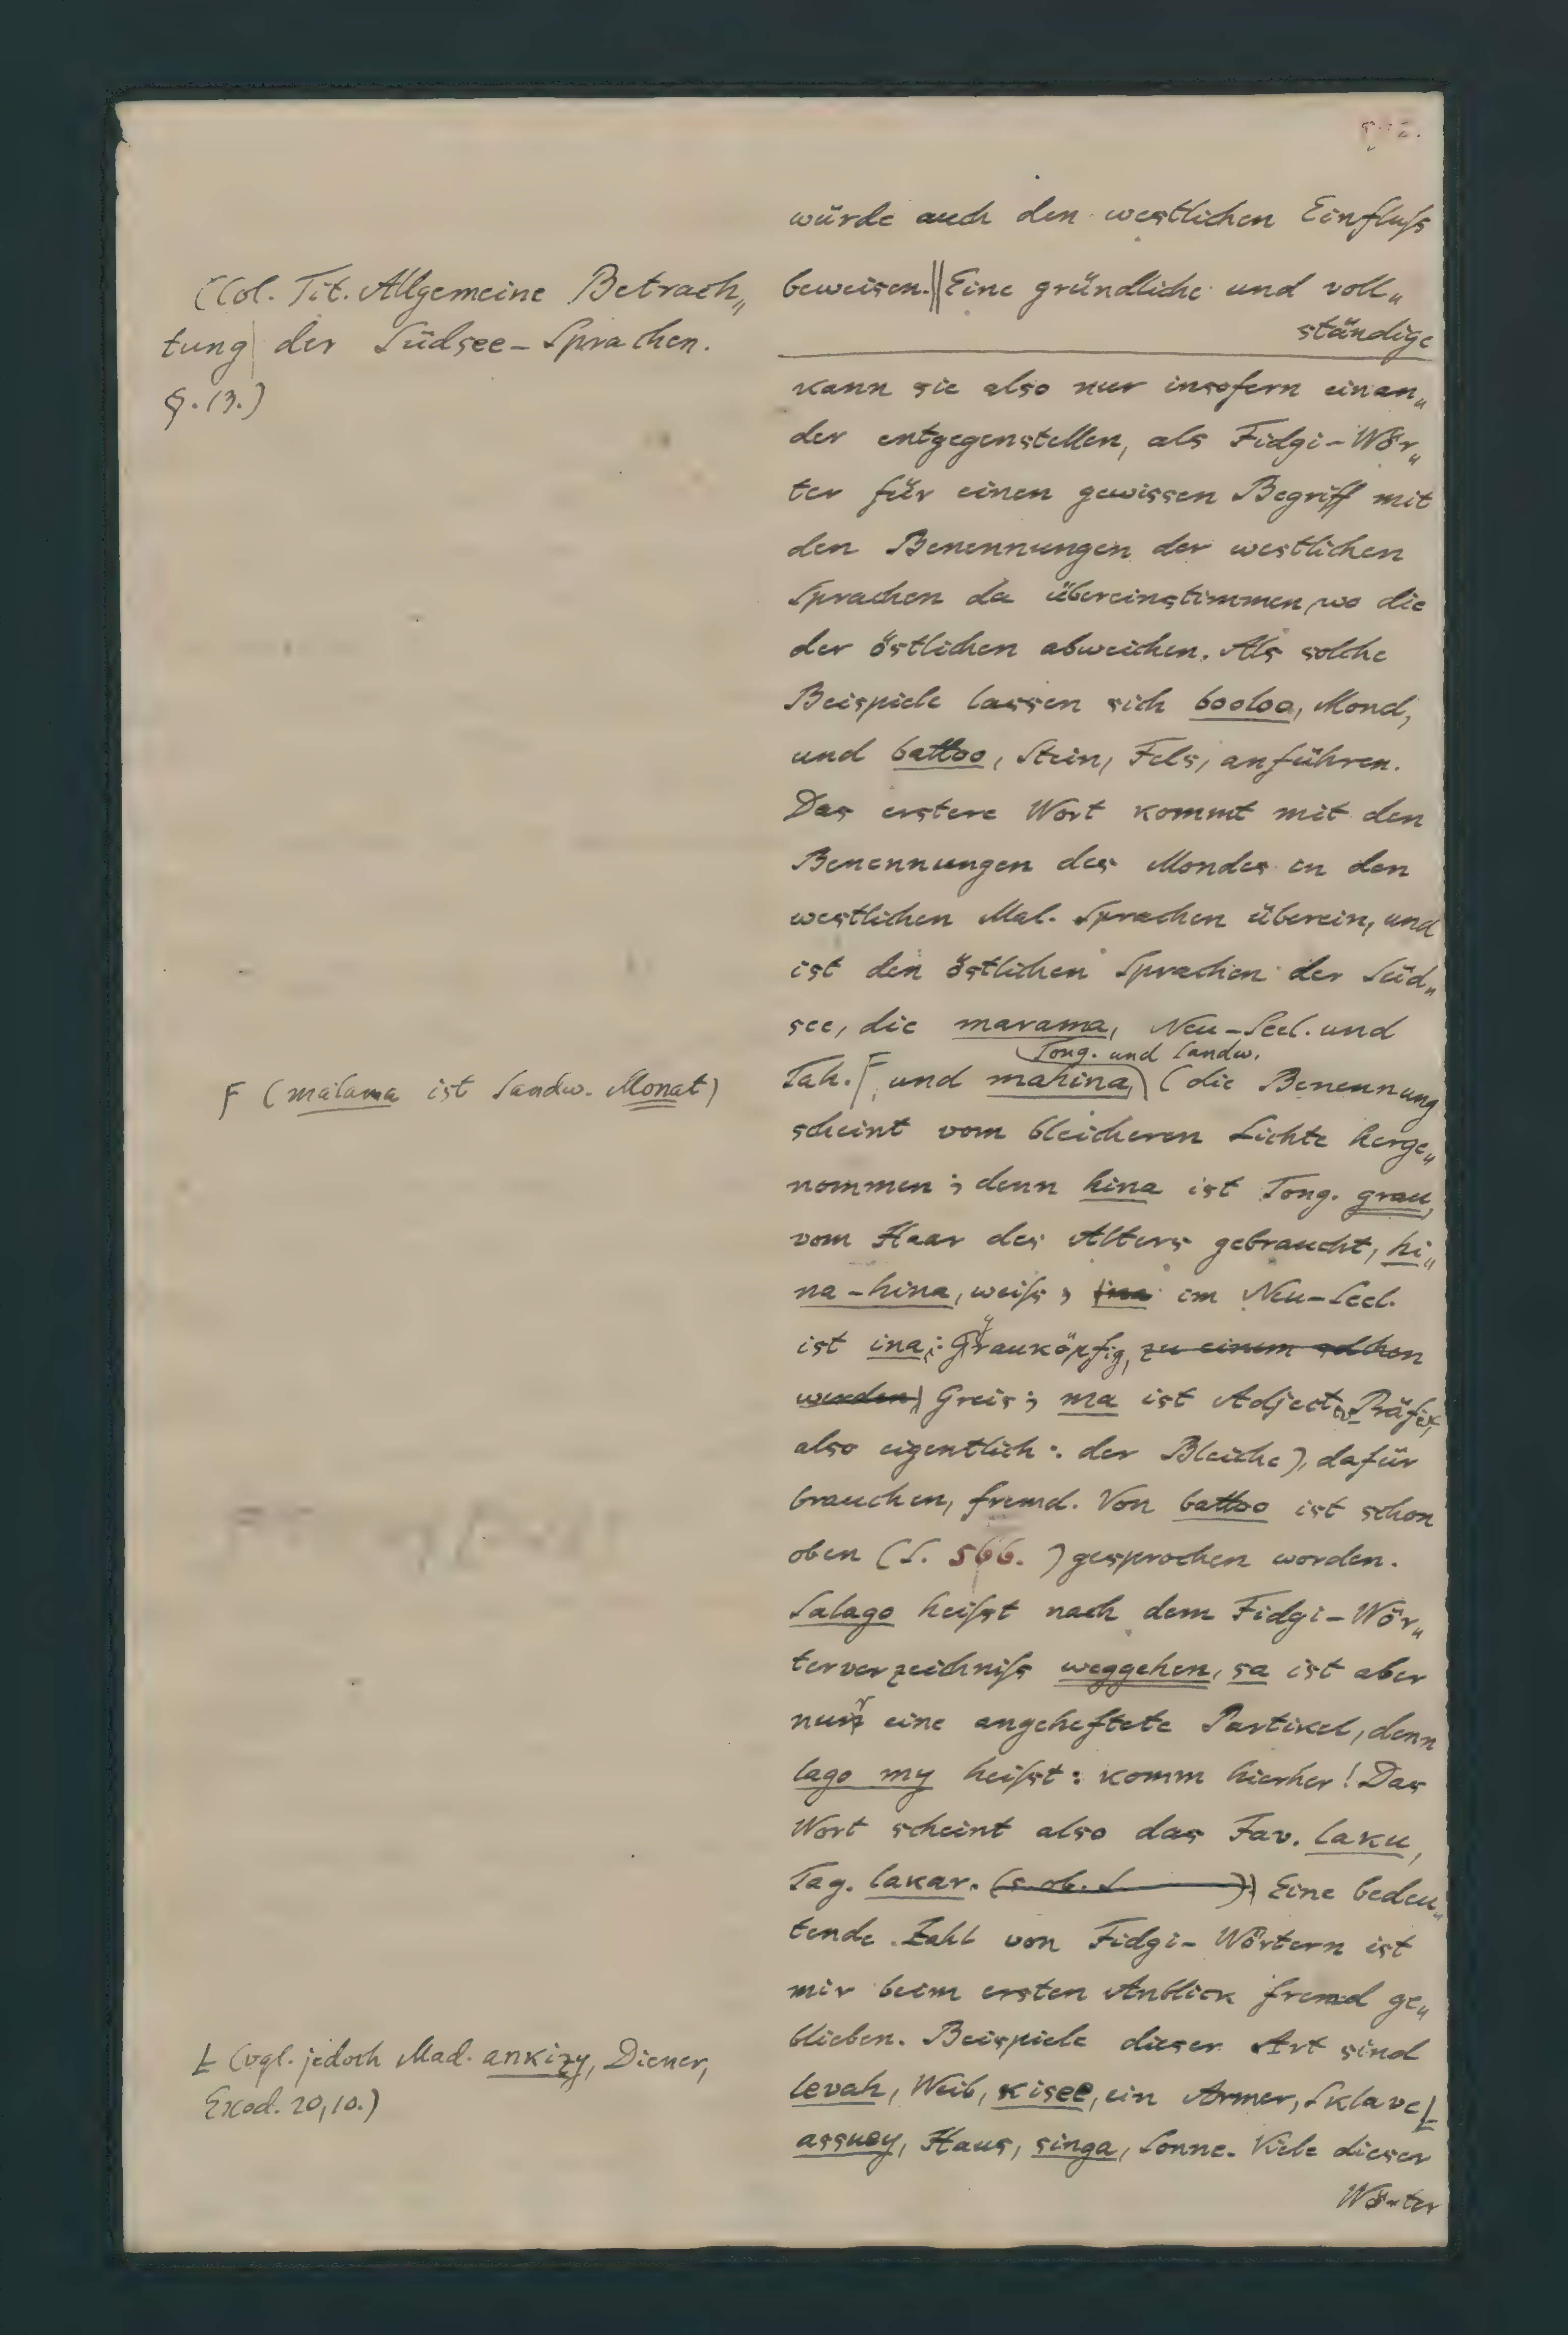 würde auch den westlichen Einfluſs
(Col. Tit. Allgemeine Betrach„
tung der Südsee-Sprachen.
§. 13.)
beweisen.||Eine gründliche und voll„
ständige
kann sie also nur insofern einan„
der entgegenstellen, als Fidgi-Wör„
ter für einen gewissen Begriff mit
den Benennungen der westlichen
Sprachen da übereinstimmen, wo die
der östlichen abweichen. Als solche
Beispiele lassen sich booloo, Mond,
und battoo, Stein, Fels, anführen.
Das erstere Wort kommt mit den
Benennungen des Mondes in den
westlichen Mal. Sprachen überein, und
ist den östlichen Sprachen der Süd„
see, die marama, Neu-Seel. und
Tong. und Sandw.
Tah. F, und mahina, (die Benennung
F (malama ist Sandw. Monat)
scheint vom bleicheren Lichte herge„
nommen; denn hina ist Tong. grau,
vom Haar des Alters gebraucht, hi„
na-hina, weiſs; ina im Neu-Seel.
ist ina: Grauköpfig, zu einem solchen
werden) Greis; ma ist Adject. Präfix,
also eigentlich: der Bleiche), dafür
brauchen, fremd. Von battoo ist schon
oben (S. 566. ) gesprochen worden.
Salago heiſst nach dem Fidgi-Wör„
terverzeichniſs weggehen, sa ist aber
nur eine angeheftete Partikel, denn
lago my heiſst: komm hierher! Das
Wort scheint also das Jav. laku,
Tag. lakar. (s. ob. S. )) Eine bedeu„
tende Zahl von Fidgi-Wörtern ist
mir beim ersten Anblick fremd ge„
blieben. Beispiele dieser Art sind
levah, Weib, kisee, ein Armer, Sklave Ł
Ł (vgl. jedoch Mad. ankizy, Diener,
Exod. 20,10.)
assuey, Haus, singa, Sonne. Viele dieser
Wörter